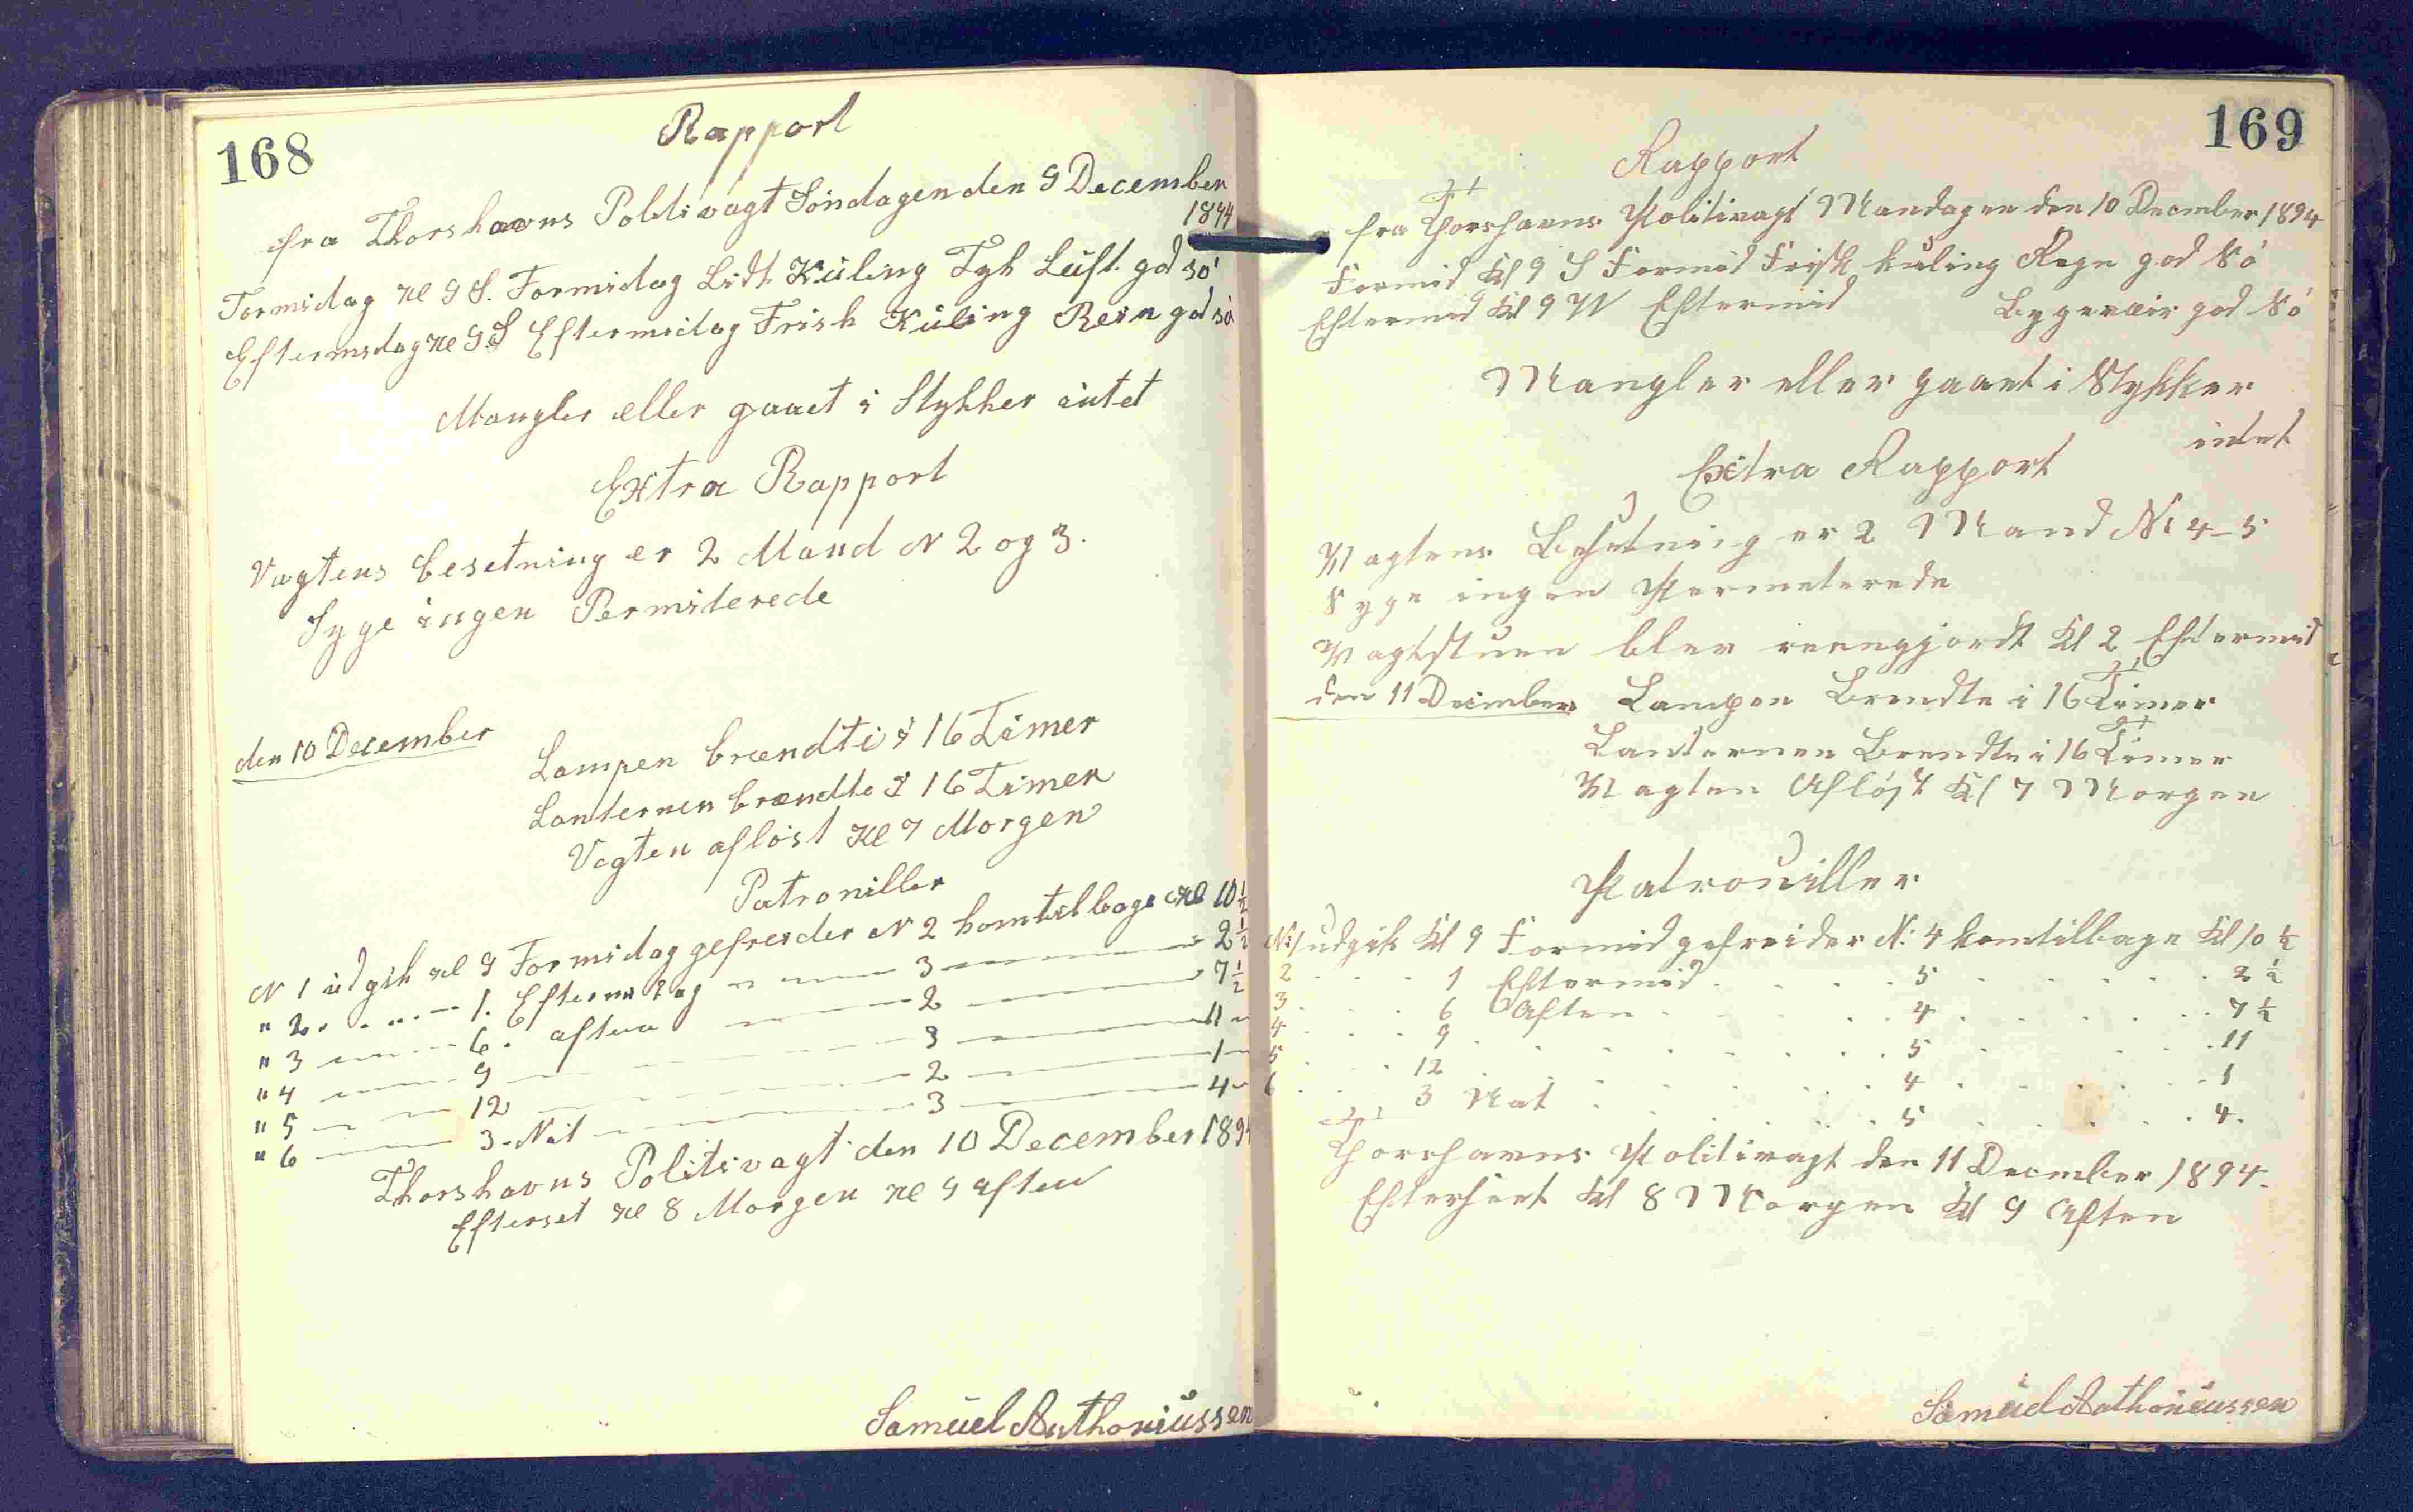 168
Rapport
fra Thorshavns Politivagt Søndagen den 9 December
1894
Formidag Kl 9 S. Formidag Lidt Küling Tyk Lüft god sö
Eftermidag Kl 9 S Eftermidag Frisk Küling Rein god sö
Mangler eller gaaet i Stykker intet
Extra Rapport
Vagtens besetning er 2 Mand N 2 og 3.
Syge ingen Permiterede
den 10 December
Lampen brændte i 16 Timer
Lanternen brændte i 16 Timer
Vagten afløst Kl 7 Morgen
Patroniller
N 1 üdgik Kl 9 Formidag gefreider N 2 komtilbage Kl 10 1/2
" 2 1. Eftermidag 3 2 1/2
" 3 6. aften 2 7 1/2
" 4 9 3 11
" 5 12 2 1
" 6 3. Nat 3 4
Thorshavns Politivagt den 10 December 1894
Efterset Kl 8 Morgen Kl 9 Aften
Samüel Anthoniüssen
169
Rapport
fra Thorshavns Politivagt Mandagen den 10 December 1894
Formid Kl 9 S Formid Frisk küling Regn god Sö
Eftermid Kl 9 W Eftermid Bygeveir god Sö
Mangler eller gaaet i Stykker
intet
Extra Rapport
Vagtens Besetning er 2 Mand N: 4-5
Syge ingen Permeterede
Vagtstuen blev reengjordt Kl 2 Eftermid
den 11 December Lampen Brendte i 16 Timer
Lanternen Brendte i 16 Timer
Vagten Afløst Kl 7 Morgen
Patrouiller
N: 1 udgik Kl 9 Formid gefreider N: 4 komtilbage Kl 10 1/2
2 1 Eftermid 5 2 1/2
3 6 Aften 4 7 1/2
4 9 5 11
5 12 4 1
6 3 Nat 5 4.
Thorshavns Politivagt den 11 December 1894.
Efterseet Kl 8 Morgen Kl 9 Aften
Samüel Anthoniüssen